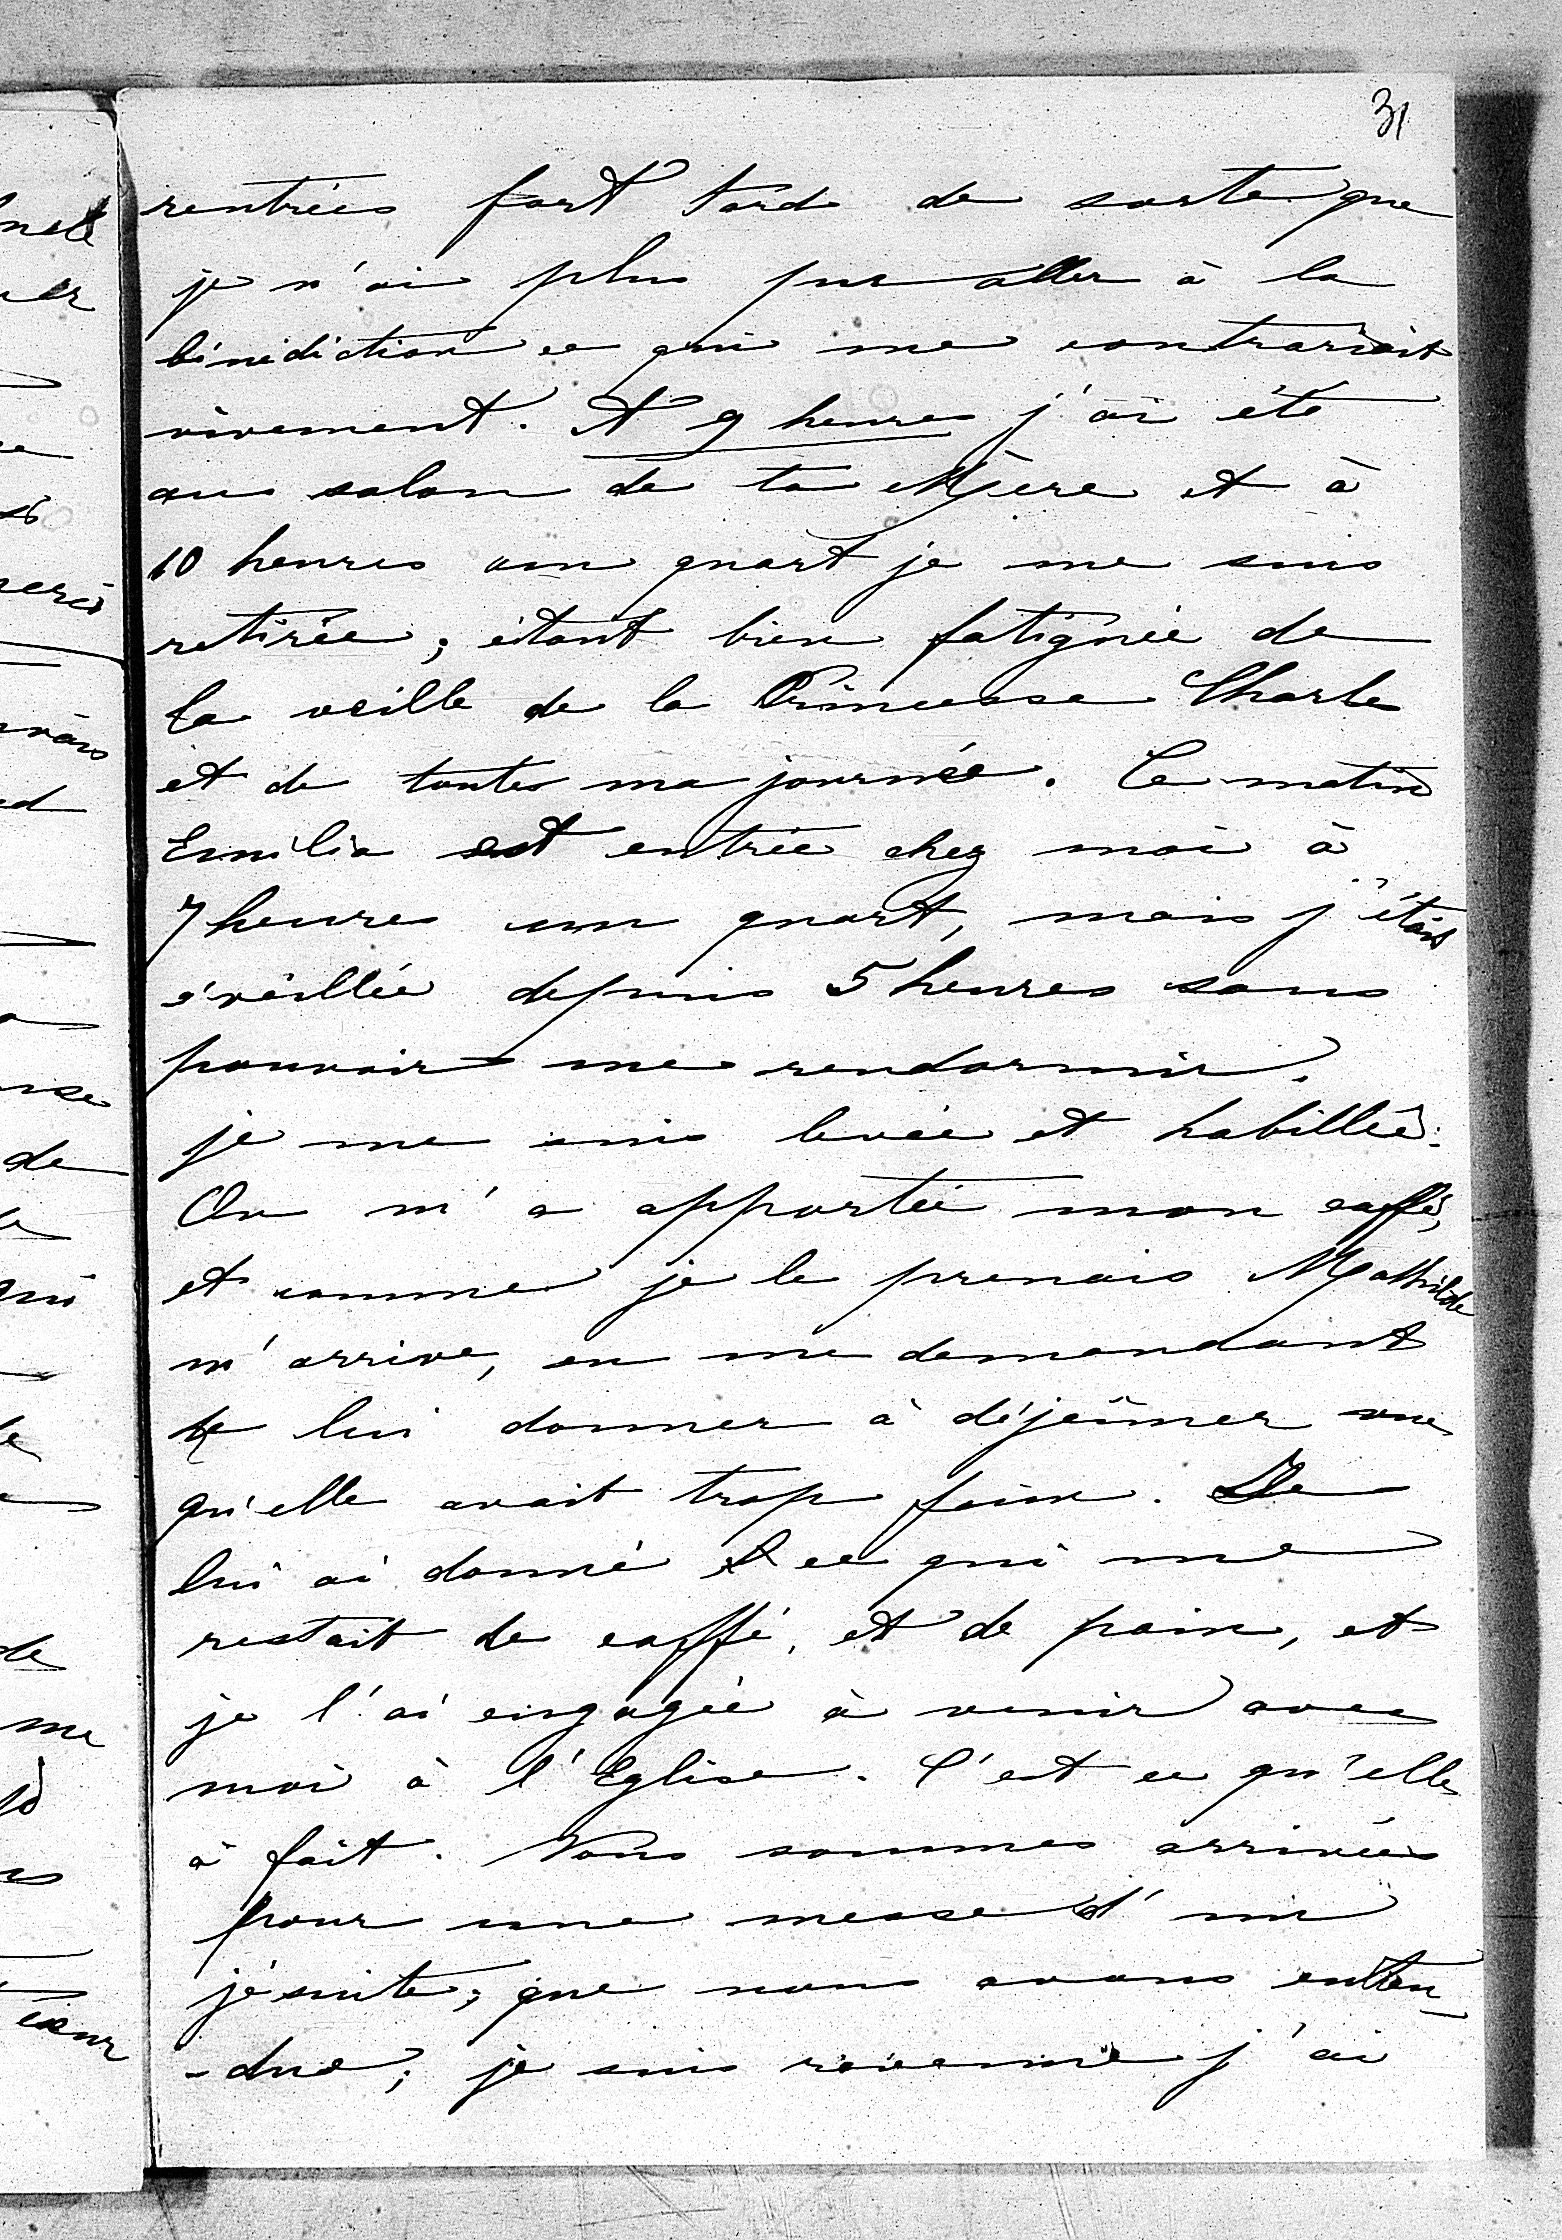 31
rentrées fort tard de sorte que
je n'ai plus pu aller à la
bénédiction ce qui me contrariait
vivement. A 9 heures j'ai été
au salon de ta Mère et à
10 heures un quart je me suis
retirée; étant bien fatignée de
la veille de la Princesse Charles
et de toutes ma journée. Ce matin
Emilia est entrée chez moi à
7 heures un quart, mais j'étais
éveillée depuis 5 heures sans
pouvoir me rendormir.
je me suis levée et habillée.
On m'a apportée mon caffé,
et comme je le prenais Mathilde
m'arrive, en me demandant
de lui donner à déjeûner vue
qu'elle avait trop faim. Je
lui ai donné ce qui me
restait de caffé, et de pain, et
je l'ai engagée à venir avec
moi à l'Eglise. C'est ce qu'elle
à fait. Nous sommes arrivées
pour une messe d'un
jésuite; que nous avons enten-
-due; je suis revenue j'ai